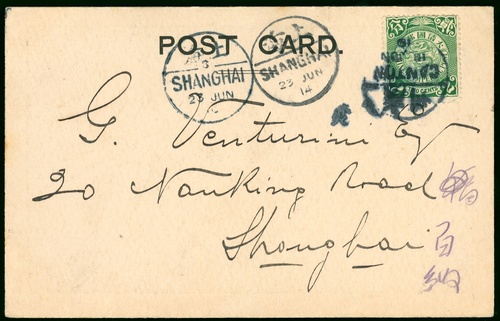 POST CARD.
SHANGHAI
23 JUN
SHANGHAI
23 JUN
14
CANTON
G. Venturini
20 Nanking Road
Shanghai